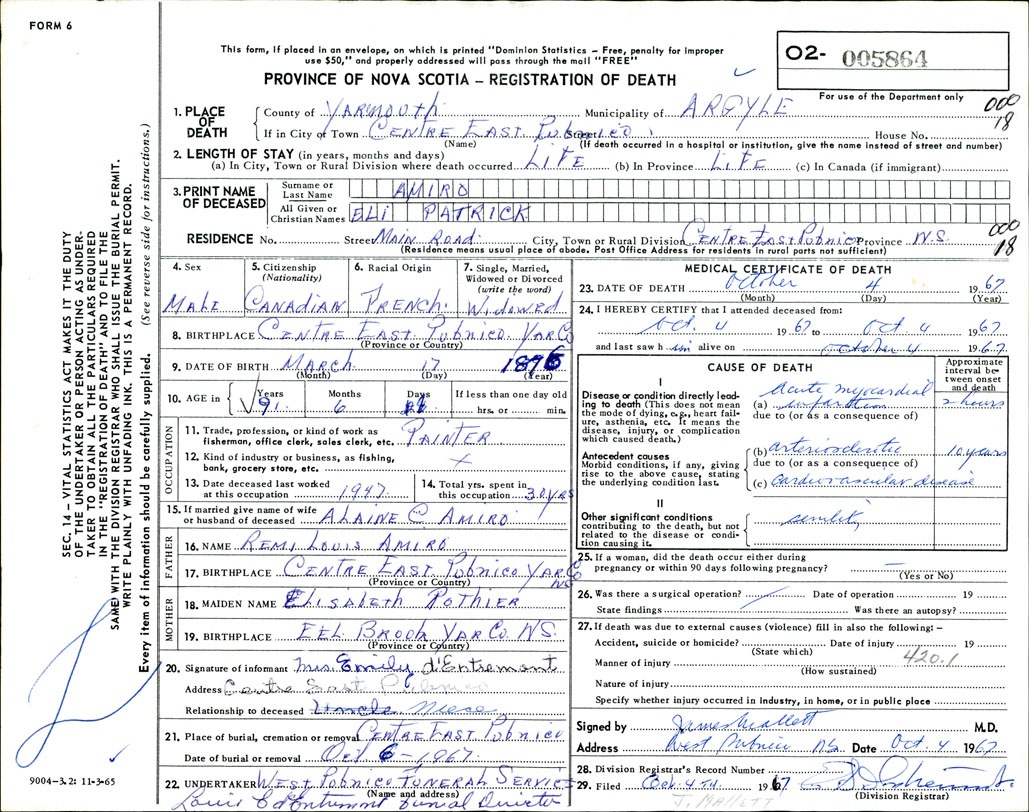 FORM 6
This form, if placed in an envelope, on which is printed "Dominion Statistics – Free, penalty for improper
use $50," and properly addressed will pass through the mail "FREE"
PROVINCE OF NOVA SCOTIA – REGISTRATION OF DEATH
O2- 005864
For use of the Department only
000
18
1. PLACE OF DEATH
County of Yarmouth Municipality of ARGYLE
If in City or Town Centre East Pubnico Street House No.
(Name) (If death occurred in a hospital or institution, give the name instead of street and number)
2. LENGTH OF STAY (in years, months and days)
(a) In City, Town or Rural Division where death occurred LIFE (b) In Province LIFE (c) In Canada (if immigrant)
3. PRINT NAME OF DECEASED
Surname or Last Name AMIRO
All Given or Christian Names ELI PATRICK
000
18
RESIDENCE No. Street Main Road City, Town or Rural Division Centre East Pubnico Province N.S.
(Residence means usual place of abode. Post Office Address for residents in rural parts not sufficient)
4. Sex
Male
5. Citizenship
(Nationality)
Canadian
6. Racial Origin
French
7. Single, Married,
Widowed or Divorced
(write the word)
Widowed
8. BIRTHPLACE Centre East Pubnico Yar Co
(Province or Country)
9. DATE OF BIRTH March 17 1876
(Month) (Day) (Year)
10. AGE in Years Months Days If less than one day old
91 6 hrs. or min.
OCCUPATION
11. Trade, profession, or kind of work as
fisherman, office clerk, sales clerk, etc. Painter
12. Kind of industry or business, as fishing,
bank, grocery store, etc. x
13. Date deceased last worked
at this occupation 1947
14. Total yrs. spent in
this occupation 30 yrs
15. If married give name of wife
or husband of deceased Alaine C Amiro
FATHER
16. NAME Remi Louis Amiro
17. BIRTHPLACE Centre East Pubnico Yar Co
NS
(Province or Country)
MOTHER
18. MAIDEN NAME Elisabeth Pothier
19. BIRTHPLACE Eel Brook Yar Co. N.S.
(Province or Country)
20. Signature of informant Mrs. Emily d'Entremont
Address Centre East Pubnico
Relationship to deceased Uncle Niece
21. Place of burial, cremation or removal Centre East Pubnico
Date of burial or removal Oct 6 – 1967
22. UNDERTAKER West Pubnico Funeral Service
(Name and address)
Louis C d'Entremont Funeral Director
MEDICAL CERTIFICATE OF DEATH
23. DATE OF DEATH October 4 1967
(Month) (Day) (Year)
24. I HEREBY CERTIFY that I attended deceased from:
Oct. 4 1967 to Oct 4 1967
and last saw h im alive on October 4 1967.
CAUSE OF DEATH
Approximate
interval be-
tween onset
and death
I
Disease or condition directly lead-
ing to death (This does not mean
the mode of dying, e.g., heart fail-
ure, asthenia, etc. It means the
disease, injury, or complication
which caused death.)
(a) Acute myocardial
infarction 2 hours
due to (or as a consequence of)
Antecedent causes
Morbid conditions, if any, giving
rise to the above cause, stating
the underlying condition last.
(b) arteriosclerotic 10 years
due to (or as a consequence of)
(c) cardiovascular disease
II
Other significant conditions
contributing to the death, but not
related to the disease or condi-
tion causing it.
senility
25. If a woman, did the death occur either during
pregnancy or within 90 days following pregnancy? —
(Yes or No)
26. Was there a surgical operation? Date of operation 19
State findings Was there an autopsy?
27. If death was due to external causes (violence) fill in also the following: –
Accident, suicide or homicide? Date of injury 19
(State which)
420.1
Manner of injury
(How sustained)
Nature of injury
Specify whether injury occurred in industry, in home, or in public place
Signed by James Mallett M.D.
Address West Pubnico N.S. Date Oct. 4 1967
28. Division Registrar's Record Number
29. Filed Oct 4th 1967
(Division Registrar)
J. MALLETT
SEC. 14 – VITAL STATISTICS ACT MAKES IT THE DUTY
OF THE UNDERTAKER OR PERSON ACTING AS UNDER-
TAKER TO OBTAIN ALL THE PARTICULARS REQUIRED
IN THE "REGISTRATION OF DEATH" AND TO FILE THE
SAME WITH THE DIVISION REGISTRAR WHO SHALL ISSUE THE BURIAL PERMIT.
WRITE PLAINLY WITH UNFADING INK. THIS IS A PERMANENT RECORD.
Every item of information should be carefully supplied. (See reverse side for instructions.)
9004-3.2: 11-3-65